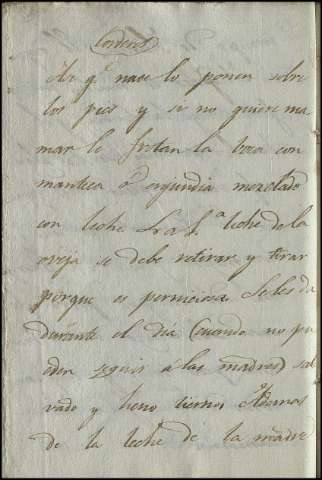 Corderos
Asi q.e nace lo ponen sobre
los pies y si no quiere ma
mar le frotan la boca con
manteca ó enjundia mezclada
con leche La 1.a leche de la
oveja se debe retirar y tirar
porque es perniciosa Se les da
durante el dia (cuando no pu
eden seguir á las madres) sal
vado y heno tierno Ademas
de la leche de la madre